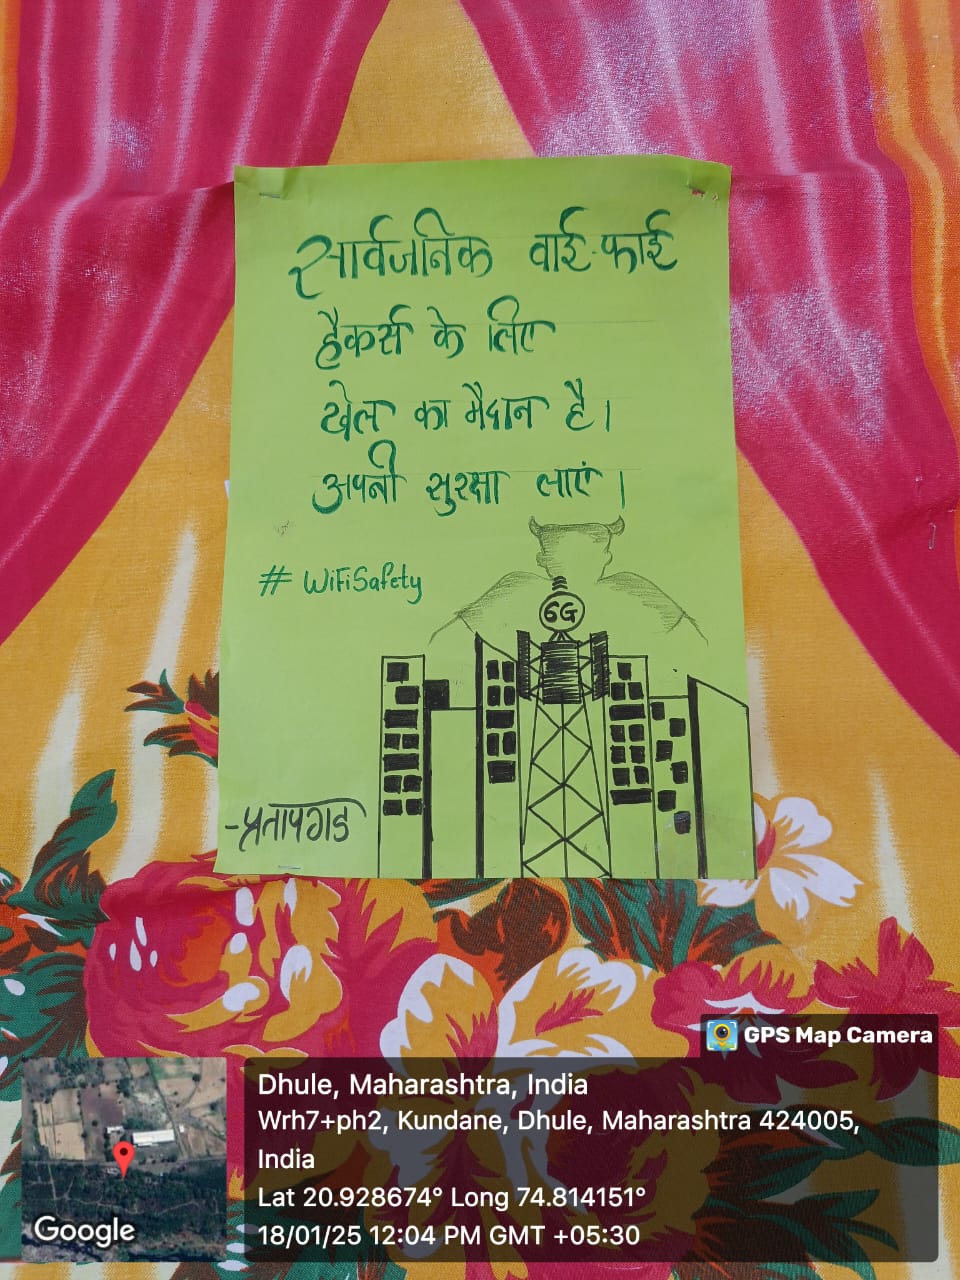 सार्वजनिक वाई-फाई
हैकर्स के लिए
खेल का मैदान है।
अपनी सुरक्षा लाएं।
# WiFiSafety
6G
-प्रतापगड
GPS Map Camera
Google
Dhule, Maharashtra, India
Wrh7+ph2, Kundane, Dhule, Maharashtra 424005,
India
Lat 20.928674° Long 74.814151°
18/01/25 12:04 PM GMT +05:30